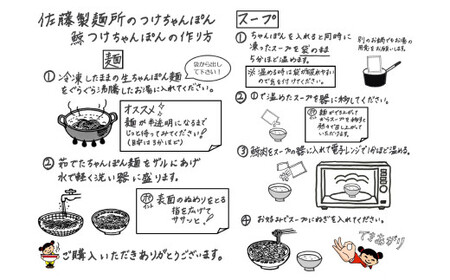 佐藤製麺所のつけちゃんぽん
鯨つけちゃんぽんの作り方
麺
袋から出して下さい!
①冷凍したままの生ちゃんぽん麺を
ぐらぐら沸騰したお湯に入れてください。
オススメ
麺が半透明になるまで
じっと待ってみてください!
②茹でたちゃんぽん麺をザルにあげ
水で軽く洗い器に盛ります。
表面のぬめりをとる
指を広げて
ササッと!
ご購入いただきありがとうございます。
スープ
①ちゃんぽんを入れると同時に
凍ったスープを袋のまま
5分ほど温めます。
別のお鍋でもお湯の
用意をお願いします。
②①で温めたスープを器に移してください。
③鯨肉をスープの器に入れて電子レンジで1分ほど温める。
④お好みでスープにねぎを入れてください。
できあがり